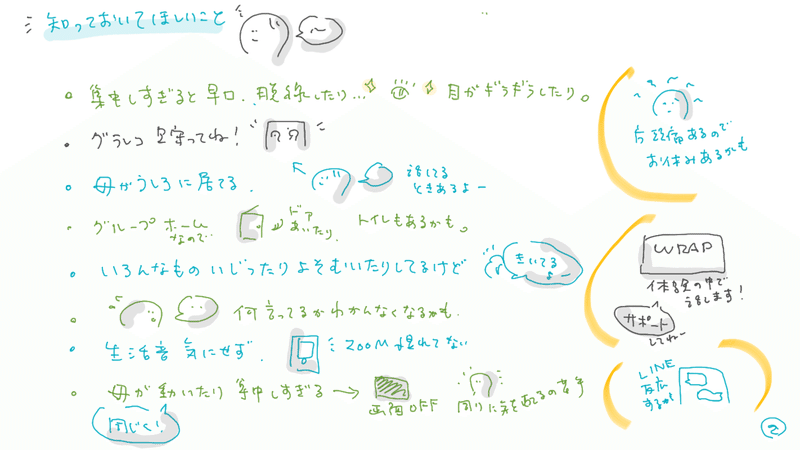 知っておいてほしいこと
集中しすぎると早口.. 脱線したり... 目がギラギラしたり。
グラレコ 見守ってね!
母がうしろに居てる. 話してるときあるよー
グループホームなので.. ドアあいたり. トイレもあるかも。
いろんなもの いじったり よそむいたりしてるけど きいてるよー
何言ってるかわかんなくなるかも.
生活音 気にせず. ZOOM 慣れてない
母が動いたり 集中しすぎる → 画面OFF 周りに気を配るの苦手
同じく!
片頭痛あるので
お休みあるかも
WRAP
体験の中で
話します!
サポート
してねー
LINE
反応
するかも
2